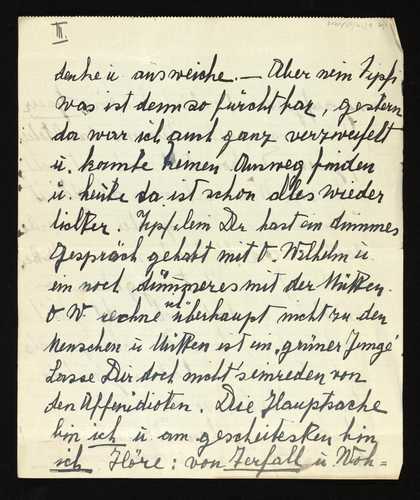 III.
denke u ausweiche. — Aber nein Zipfi
was ist denn so furchtbar, gestern
da war ich auch ganz verzweifelt
u. konnte keinen Ausweg finden
u. heute da ist schon alles wieder
lichter. Zipflein Du hast ein dummes
Gespräch gehabt mit O Wilhelm u
ein noch dümmeres mit der Mutten.
O W rechne ich überhaupt nicht zu den
Menschen u Mutten ist ein „grüner Junge"
Lasse Dir doch nicht einreden von
den Affenidioten. Die Hauptsache
bin ich u am gescheitesten bin
ich Höre: von Zerfall u. Woh=